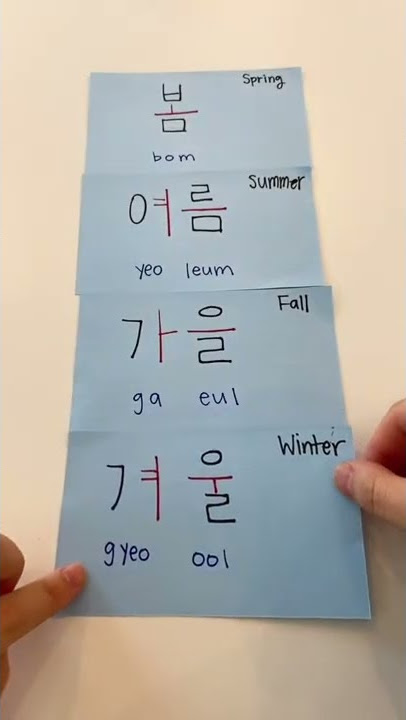 Spring
봄
bom
Summer
여름
yeo leum
Fall
가을
ga eul
Winter
겨울
gyeo ool